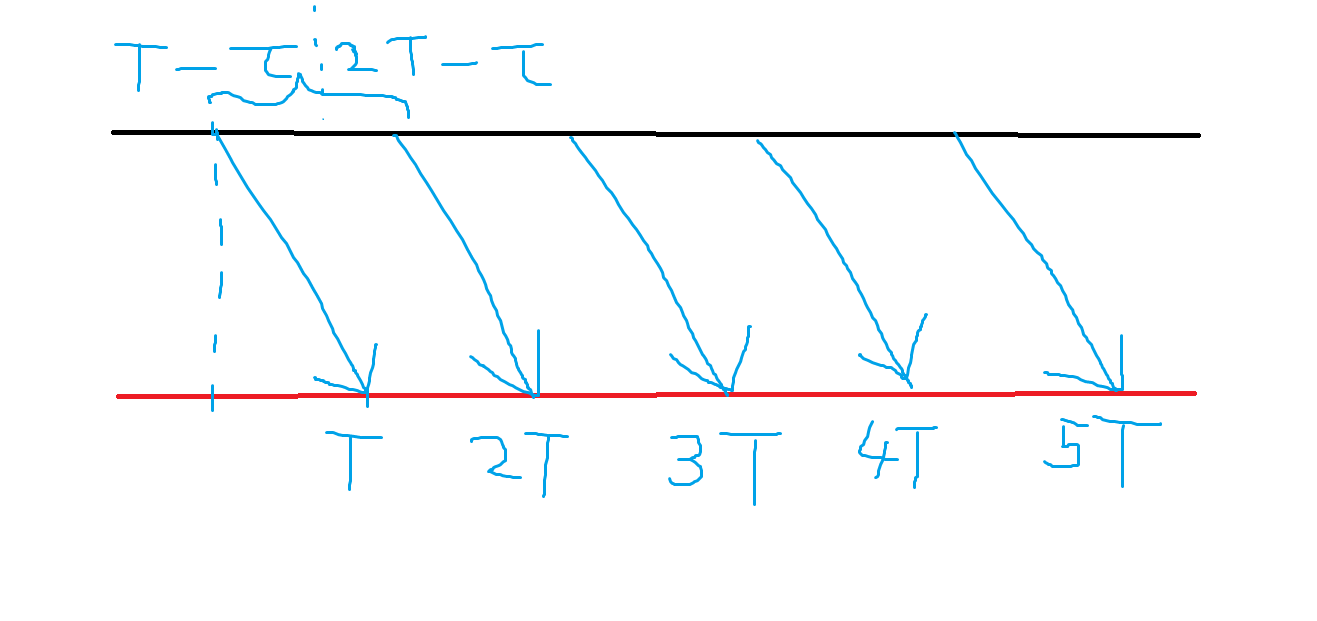 T - τ 2T - τ
T 2T 3T 4T 5T